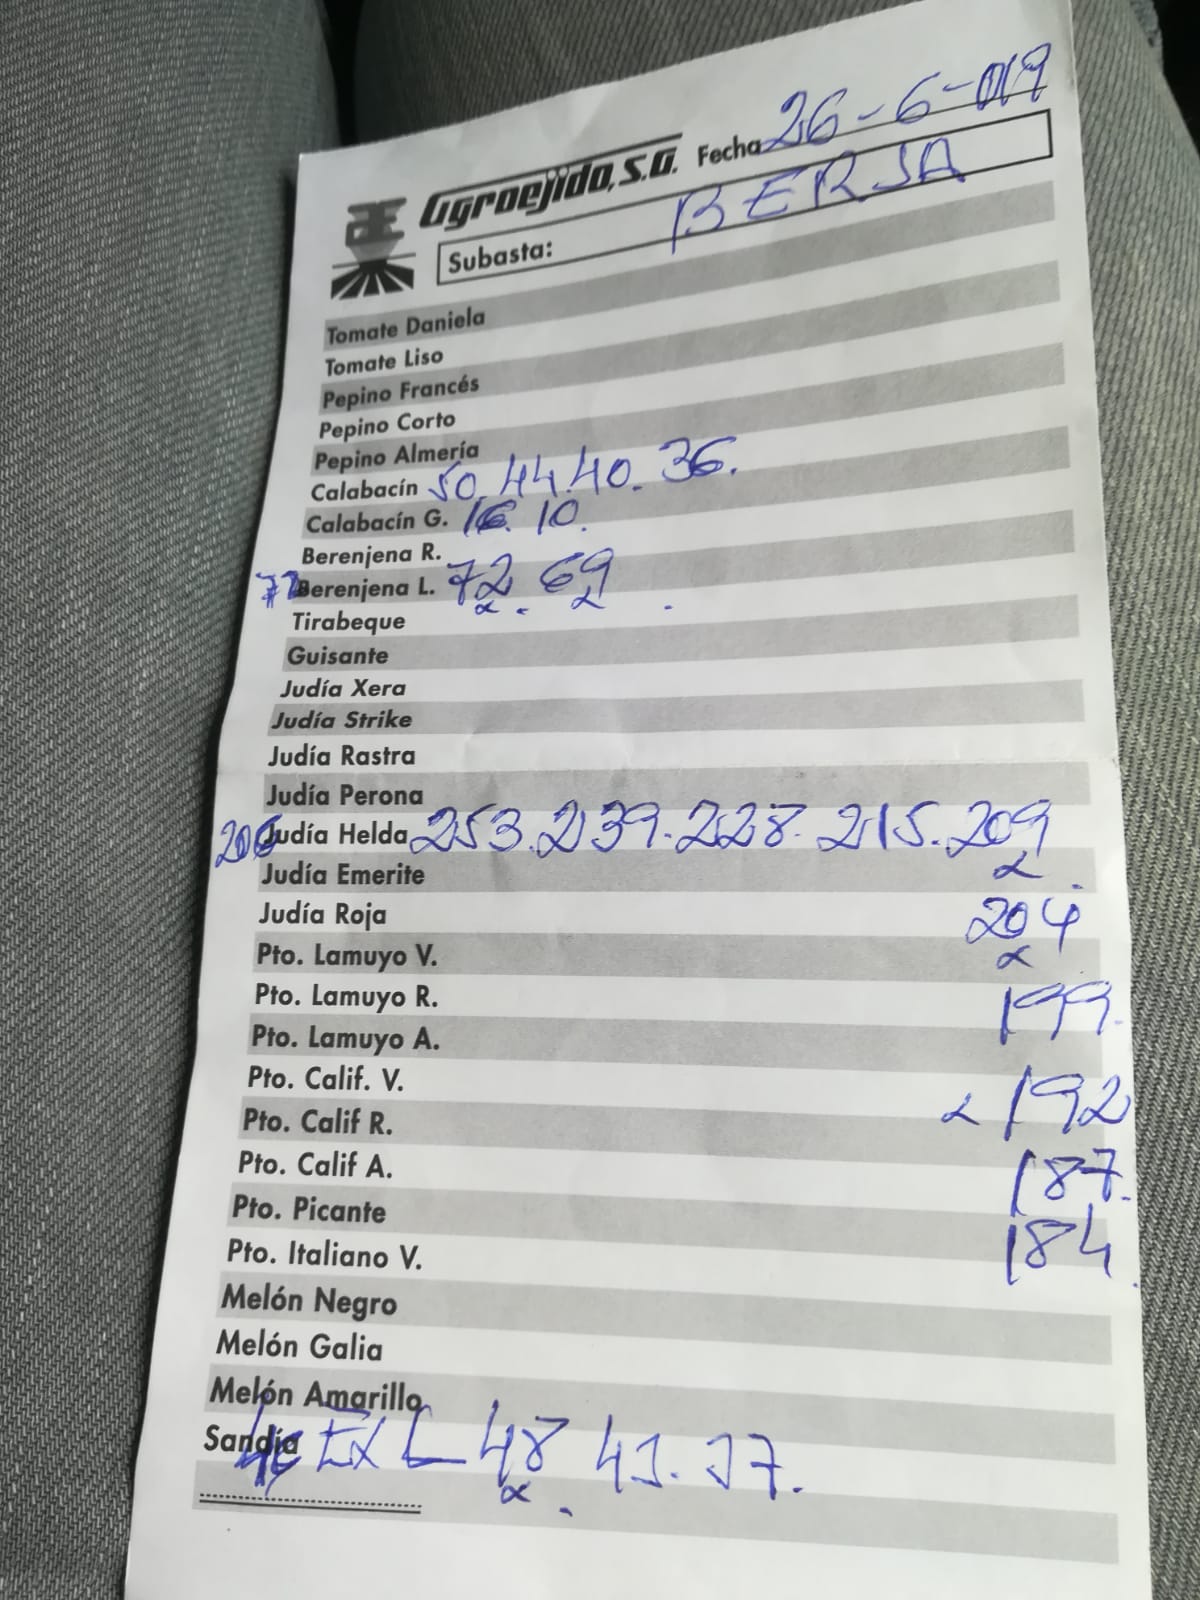 Agroejido, S.A. Fecha 26-6-019
Subasta: BERJA
Tomate Daniela
Tomate Liso
Pepino Francés
Pepino Corto
Pepino Almería
Calabacín 50. 44. 40. 36.
Calabacín G. 16. 10.
Berenjena R.
72 Berenjena L. 72. 69
Tirabeque
Guisante
Judía Xera
Judía Strike
Judía Rastra
Judía Perona
206 Judía Helda 253. 239. 228. 215. 209
Judía Emerite
Judía Roja 204
Pto. Lamuyo V.
Pto. Lamuyo R. 199.
Pto. Lamuyo A.
Pto. Calif. V. 192
Pto. Calif R.
Pto. Calif A. 187.
Pto. Picante
Pto. Italiano V. 184.
Melón Negro
Melón Galia
Melón Amarillo
Sandía 48